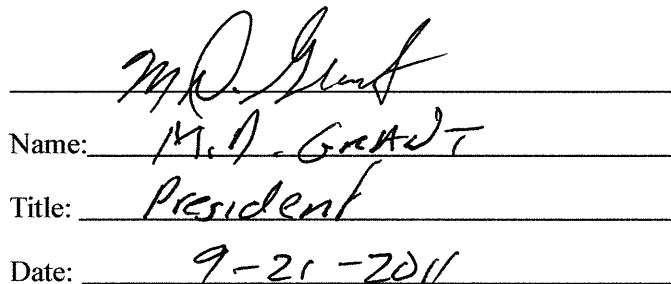 M.D. Grant
Name: M.D. GRANT
Title: President
Date: 9-21-2011